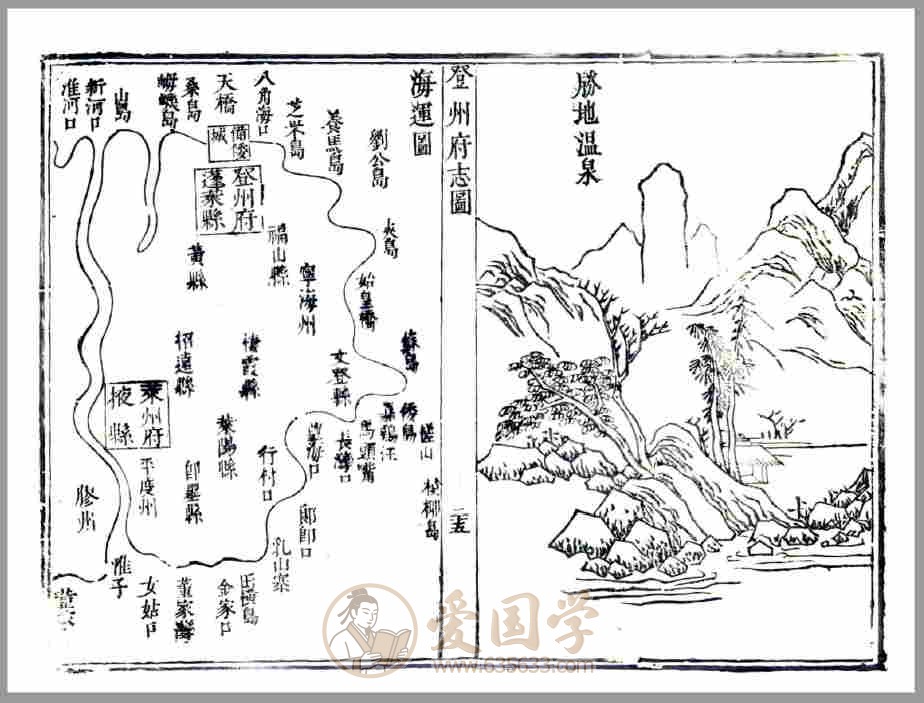 勝地温泉
登州府志圖
二十五
海運圖
劉公島
養馬島
芝罘島
八角海口
天橋
桑島
山島
新河口
淮河口
備倭城
登州府
蓬萊縣
福山縣
黃縣
夾島
始皇橋
寧海州
蘇島
文登縣
棲霞縣
招遠縣
萊州府
掖縣
馬頭嘴
長濤口
行村口
萊陽縣
即墨縣
平度州
膠州
乳山寨
田橫島
金家口
董家灣
女姑口
淮子
爱国学
www.635633.com